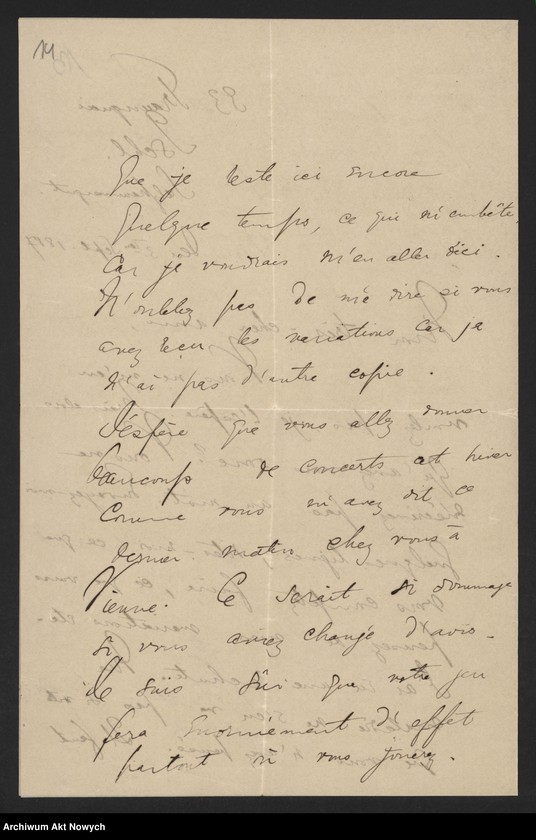 14
Que je reste ici encore
quelque temps, ce qui m'embête,
car je voudrais m'en aller d'ici.
N'oubliez pas de me dire si vous
avez reçu les variations car je
n'ai pas d'autre copie.
J'espère que vous allez donner
beaucoup de concerts cet hiver
comme vous m'avez dit ce
dernier matin chez vous à
Vienne. Ce serait si dommage
si vous aviez changé d'avis.
Je suis sûr que votre jeu
fera énormément d'effet
partout où vous jouerez.
Archiwum Akt Nowych